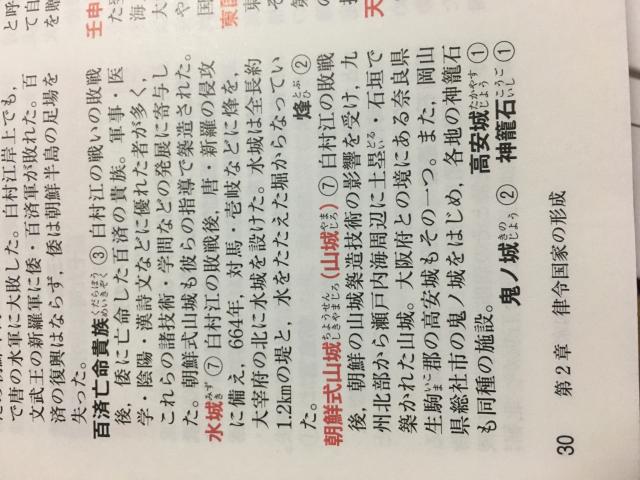 で唐の水軍に大敗した。白村江岸上でも，
文武王の新羅軍に倭・百済軍が敗れた。百
済の復興はならず，倭は朝鮮半島の足場を
失った。
くだらぼうめいきぞく
百済亡命貴族 ③ 白村江の戦いの敗戦
後，倭に亡命した百済の貴族。軍事・医
学・陰陽・漢詩文などに優れた者が多く，
これらの諸技術・学問などの発展に寄与し
た。朝鮮式山城も彼らの指導で築造された。
みずき
水城 ⑦ 白村江の敗戦後，唐・新羅の侵攻
に備え，664年，対馬・壱岐などに烽を，
大宰府の北に水城を設けた。水城は全長約
1.2kmの堤と，水をたたえた堀からなってい
とぶひ
た。 烽 ②
ちょうせんしきやまじろ やまじろ
朝鮮式山城(山城) ⑦ 白村江の敗戦
後，朝鮮の山城築造技術の影響を受け，九
どるい
州北部から瀬戸内海周辺に土塁・石垣で
築かれた山城。大阪府との境にある奈良県
いこま
生駒郡の高安城もその一つ。また，岡山
県総社市の鬼ノ城をはじめ，各地の神籠石
も同種の施設。
たかやすじょう
高安城 ①
きのじょう こうごいし
鬼ノ城 ② 神籠石 ①
30 第2章 律令国家の形成
と呼
を贈
壬申
た
海
大
や
国
東国